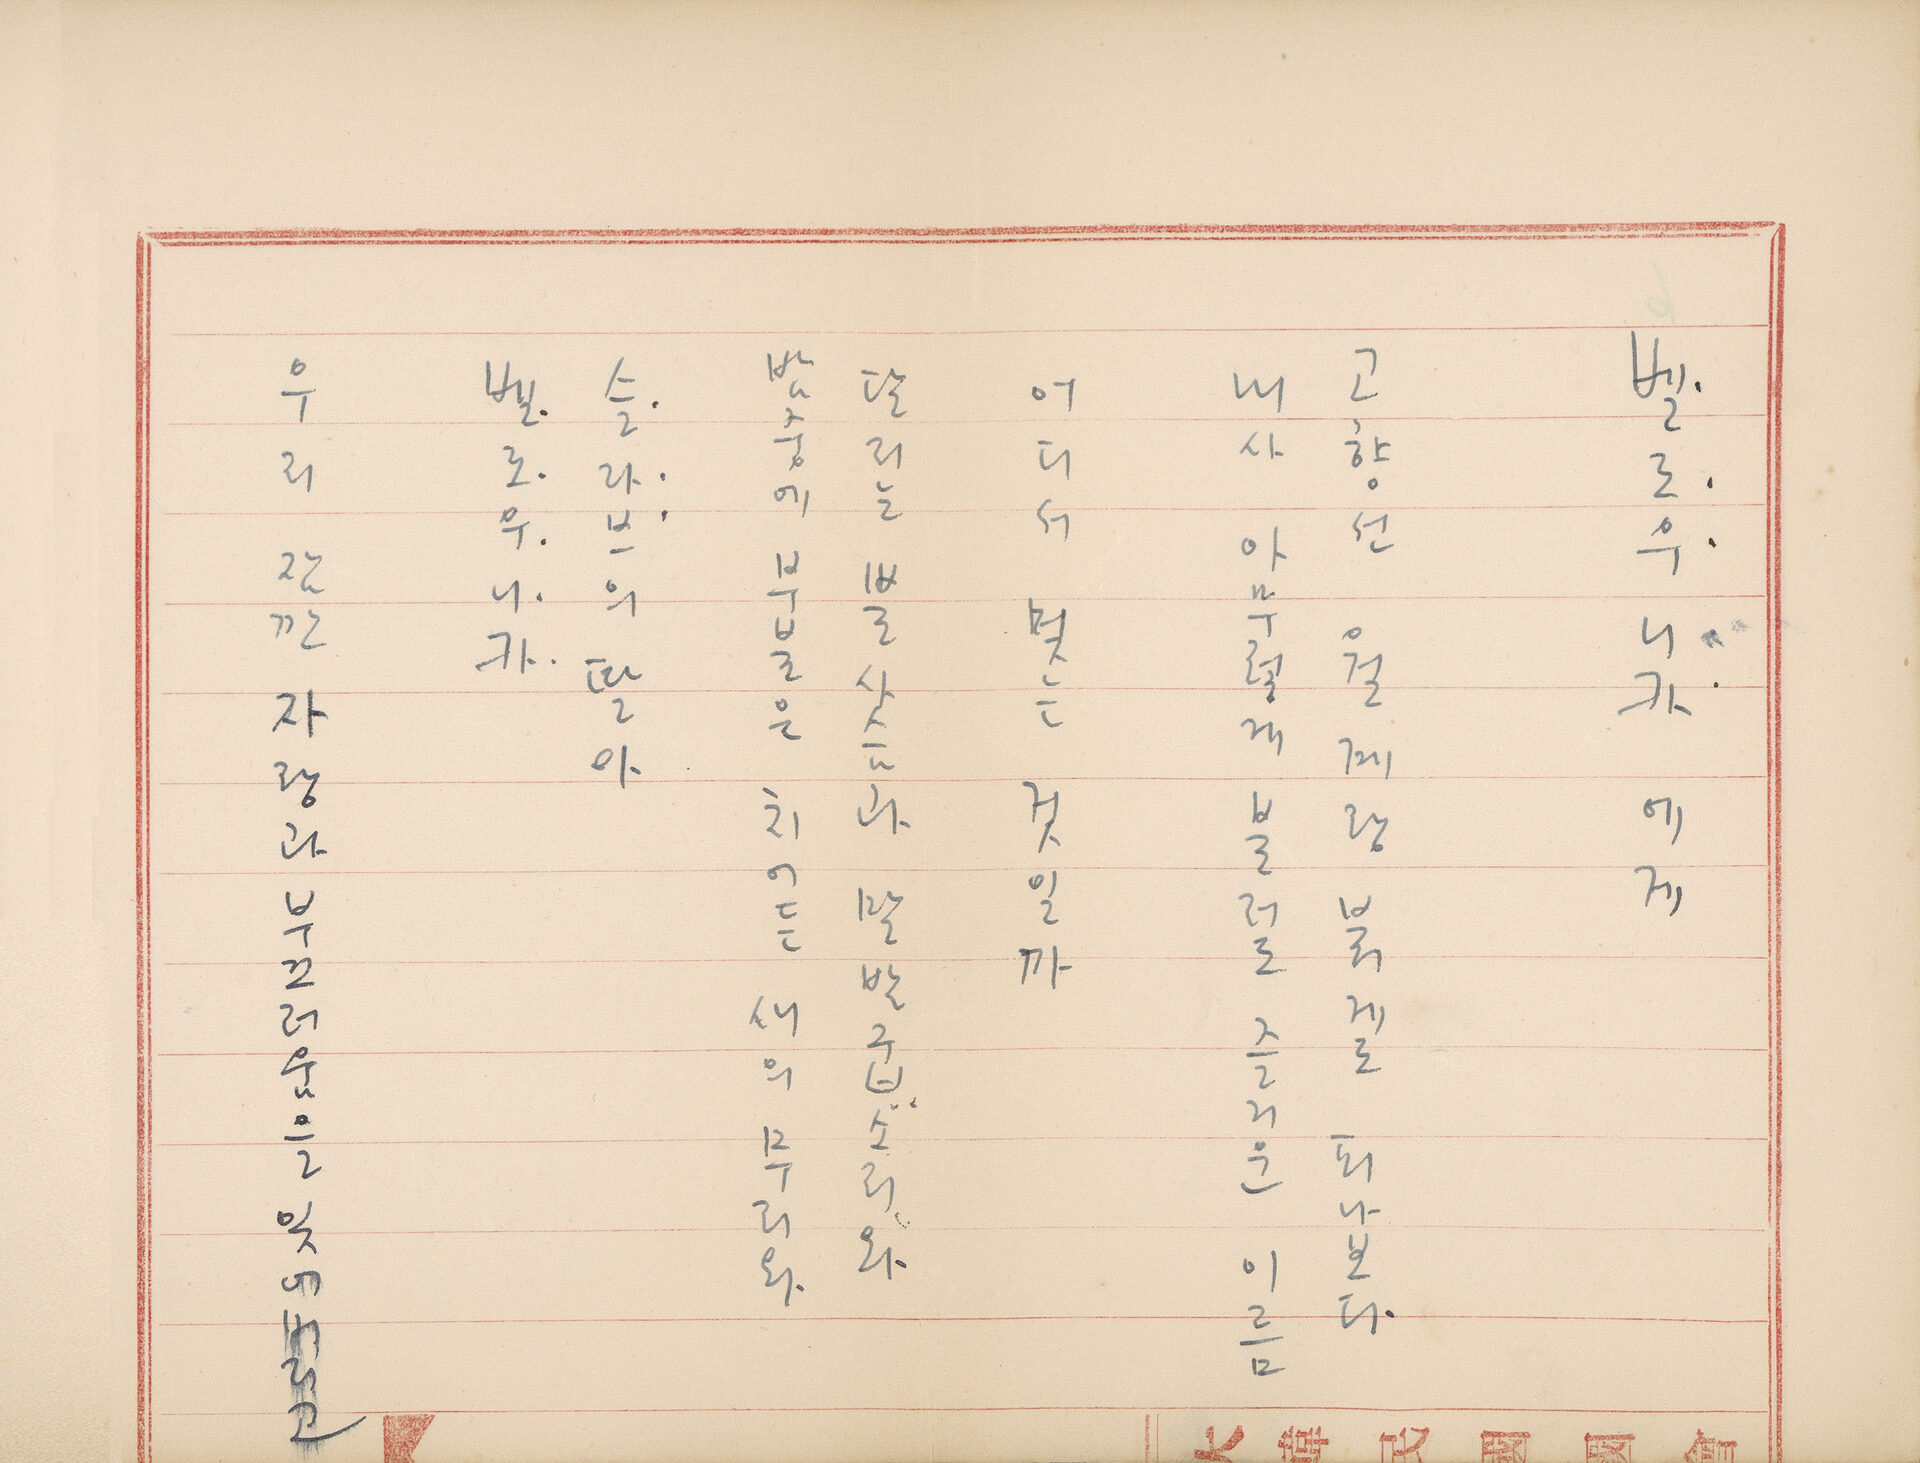 벨로우니카 에게
고향선 월계랑 붉게도 피나보다.
내사 아무렇게 불러도 즐거운 이름
어디서 멎는 것일까
달리는 뿔사슴과 말발굽소리와
밤중에 부불을 치어든 새의 무리와
슬라브의 딸아
벨로우니카
우리 잠깐 자랑과 부끄러움을
大韓民國國會